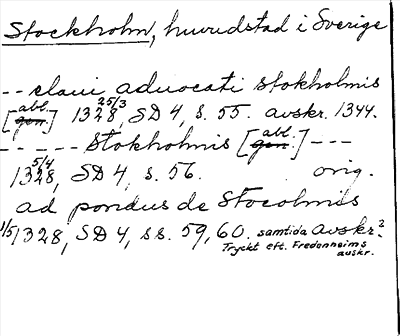 Stockholm, huvudstad i Sverige
-- claui aduocati stokholmis
[abl. gen.] 25/3 1328, SD 4, s. 55. avskr. 1344.
----- Stokholmis [abl. gen.] ---
5/4 1328, SD 4, s. 56. orig.
ad pondus de Stocolmis
1/5 1328, SD 4, ss. 59, 60. samtida avskr.?
Tryckt eft. Fredenheims
avskr.